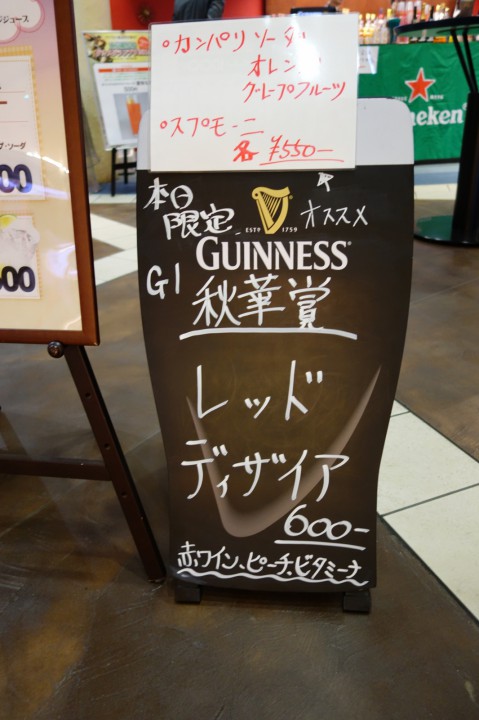 °カンパリソーダ
オレンジ
グレープフルーツ
°スプモーニ
各 ¥550-
本日
限定
オススメ
ESTD 1759
GUINNESS
G1
秋華賞
レッド
ディザイア
600-
赤ワイン、ピーチ、ビタミーナ
ジュース
・ソーダ
00
00
eineken